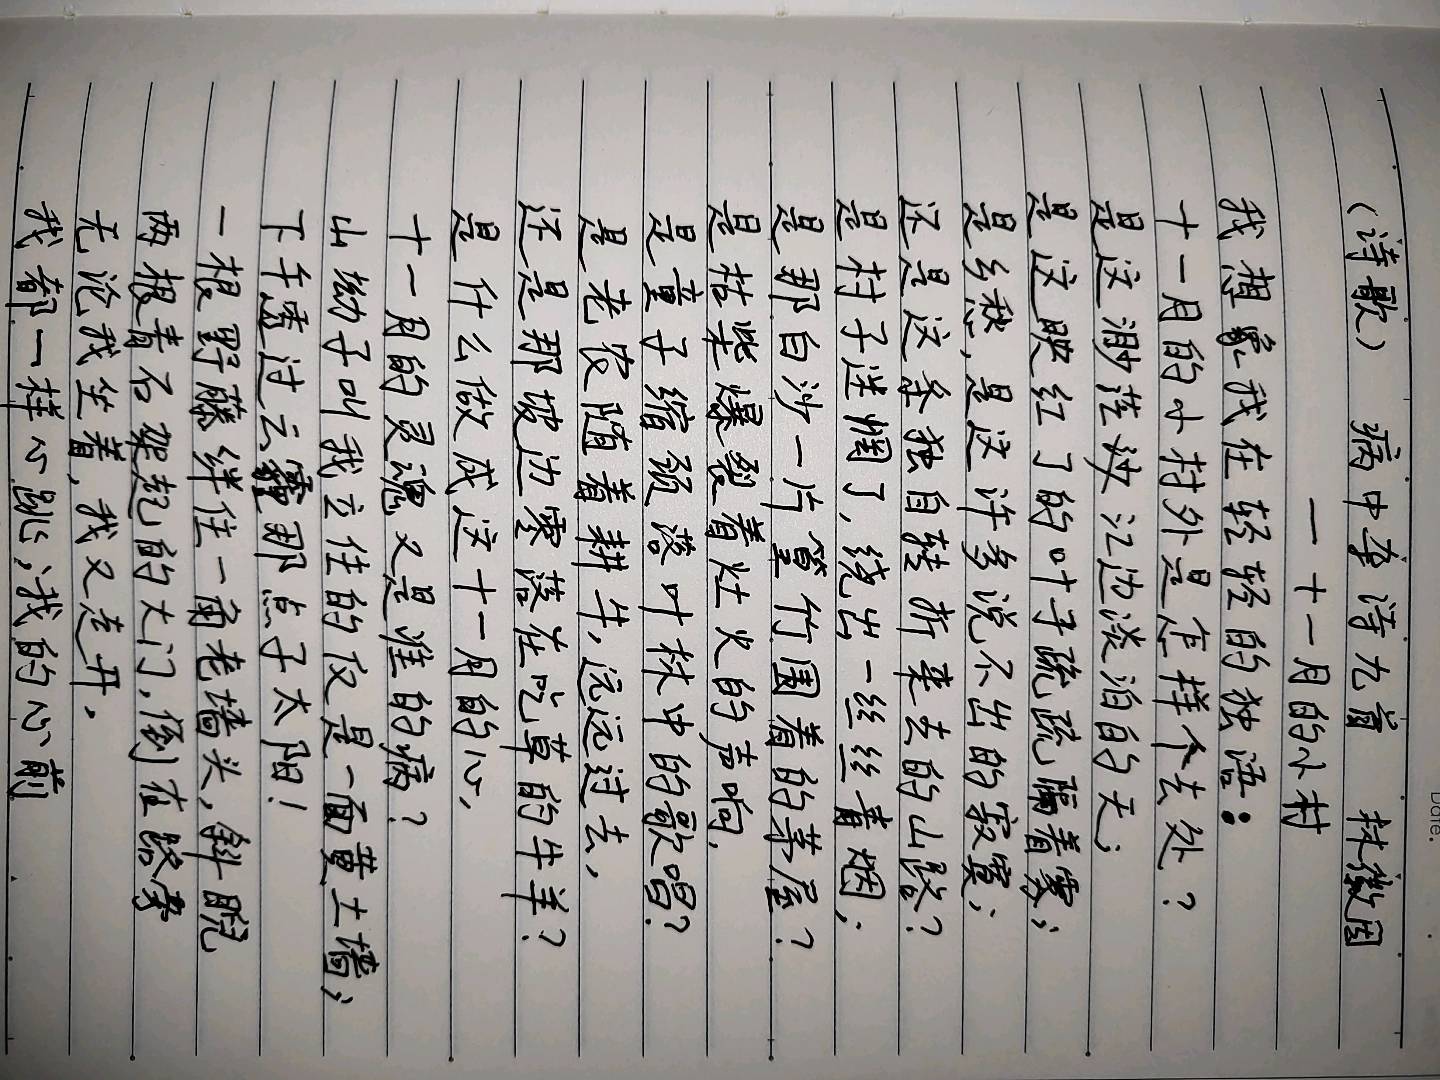 (诗歌) 病中杂诗九首 林徽因
—十一月的小村
我想象我在轻轻的独语:
十一月的小村外是怎样个去处?
是这渺茫江边淡泊的天;
是这映红了的叶子疏疏隔着雾;
是乡愁,是这许多说不出的寂寞;
还是这条独自转折来去的山路?
是村子迷惘了,绕出一丝丝青烟;
是那白沙一片篁竹围着的茅屋?
是枯柴爆裂着灶火的声响,
是童子缩颈落叶林中的歌唱?
是老农随着耕牛,远远过去,
还是那坡边零落在吃草的牛羊?
是什么做成这十一月的心,
十一月的灵魂又是谁的病?
山坳子叫我立住的仅是一面黄土墙;
下午透过云霾那点子太阳!
一根野藤绊住一角老墙头,斜睨
两根青石架起的大门,倒在路旁
无论我坐着,我又走开,
我都一样心跳;我的心前
Date.